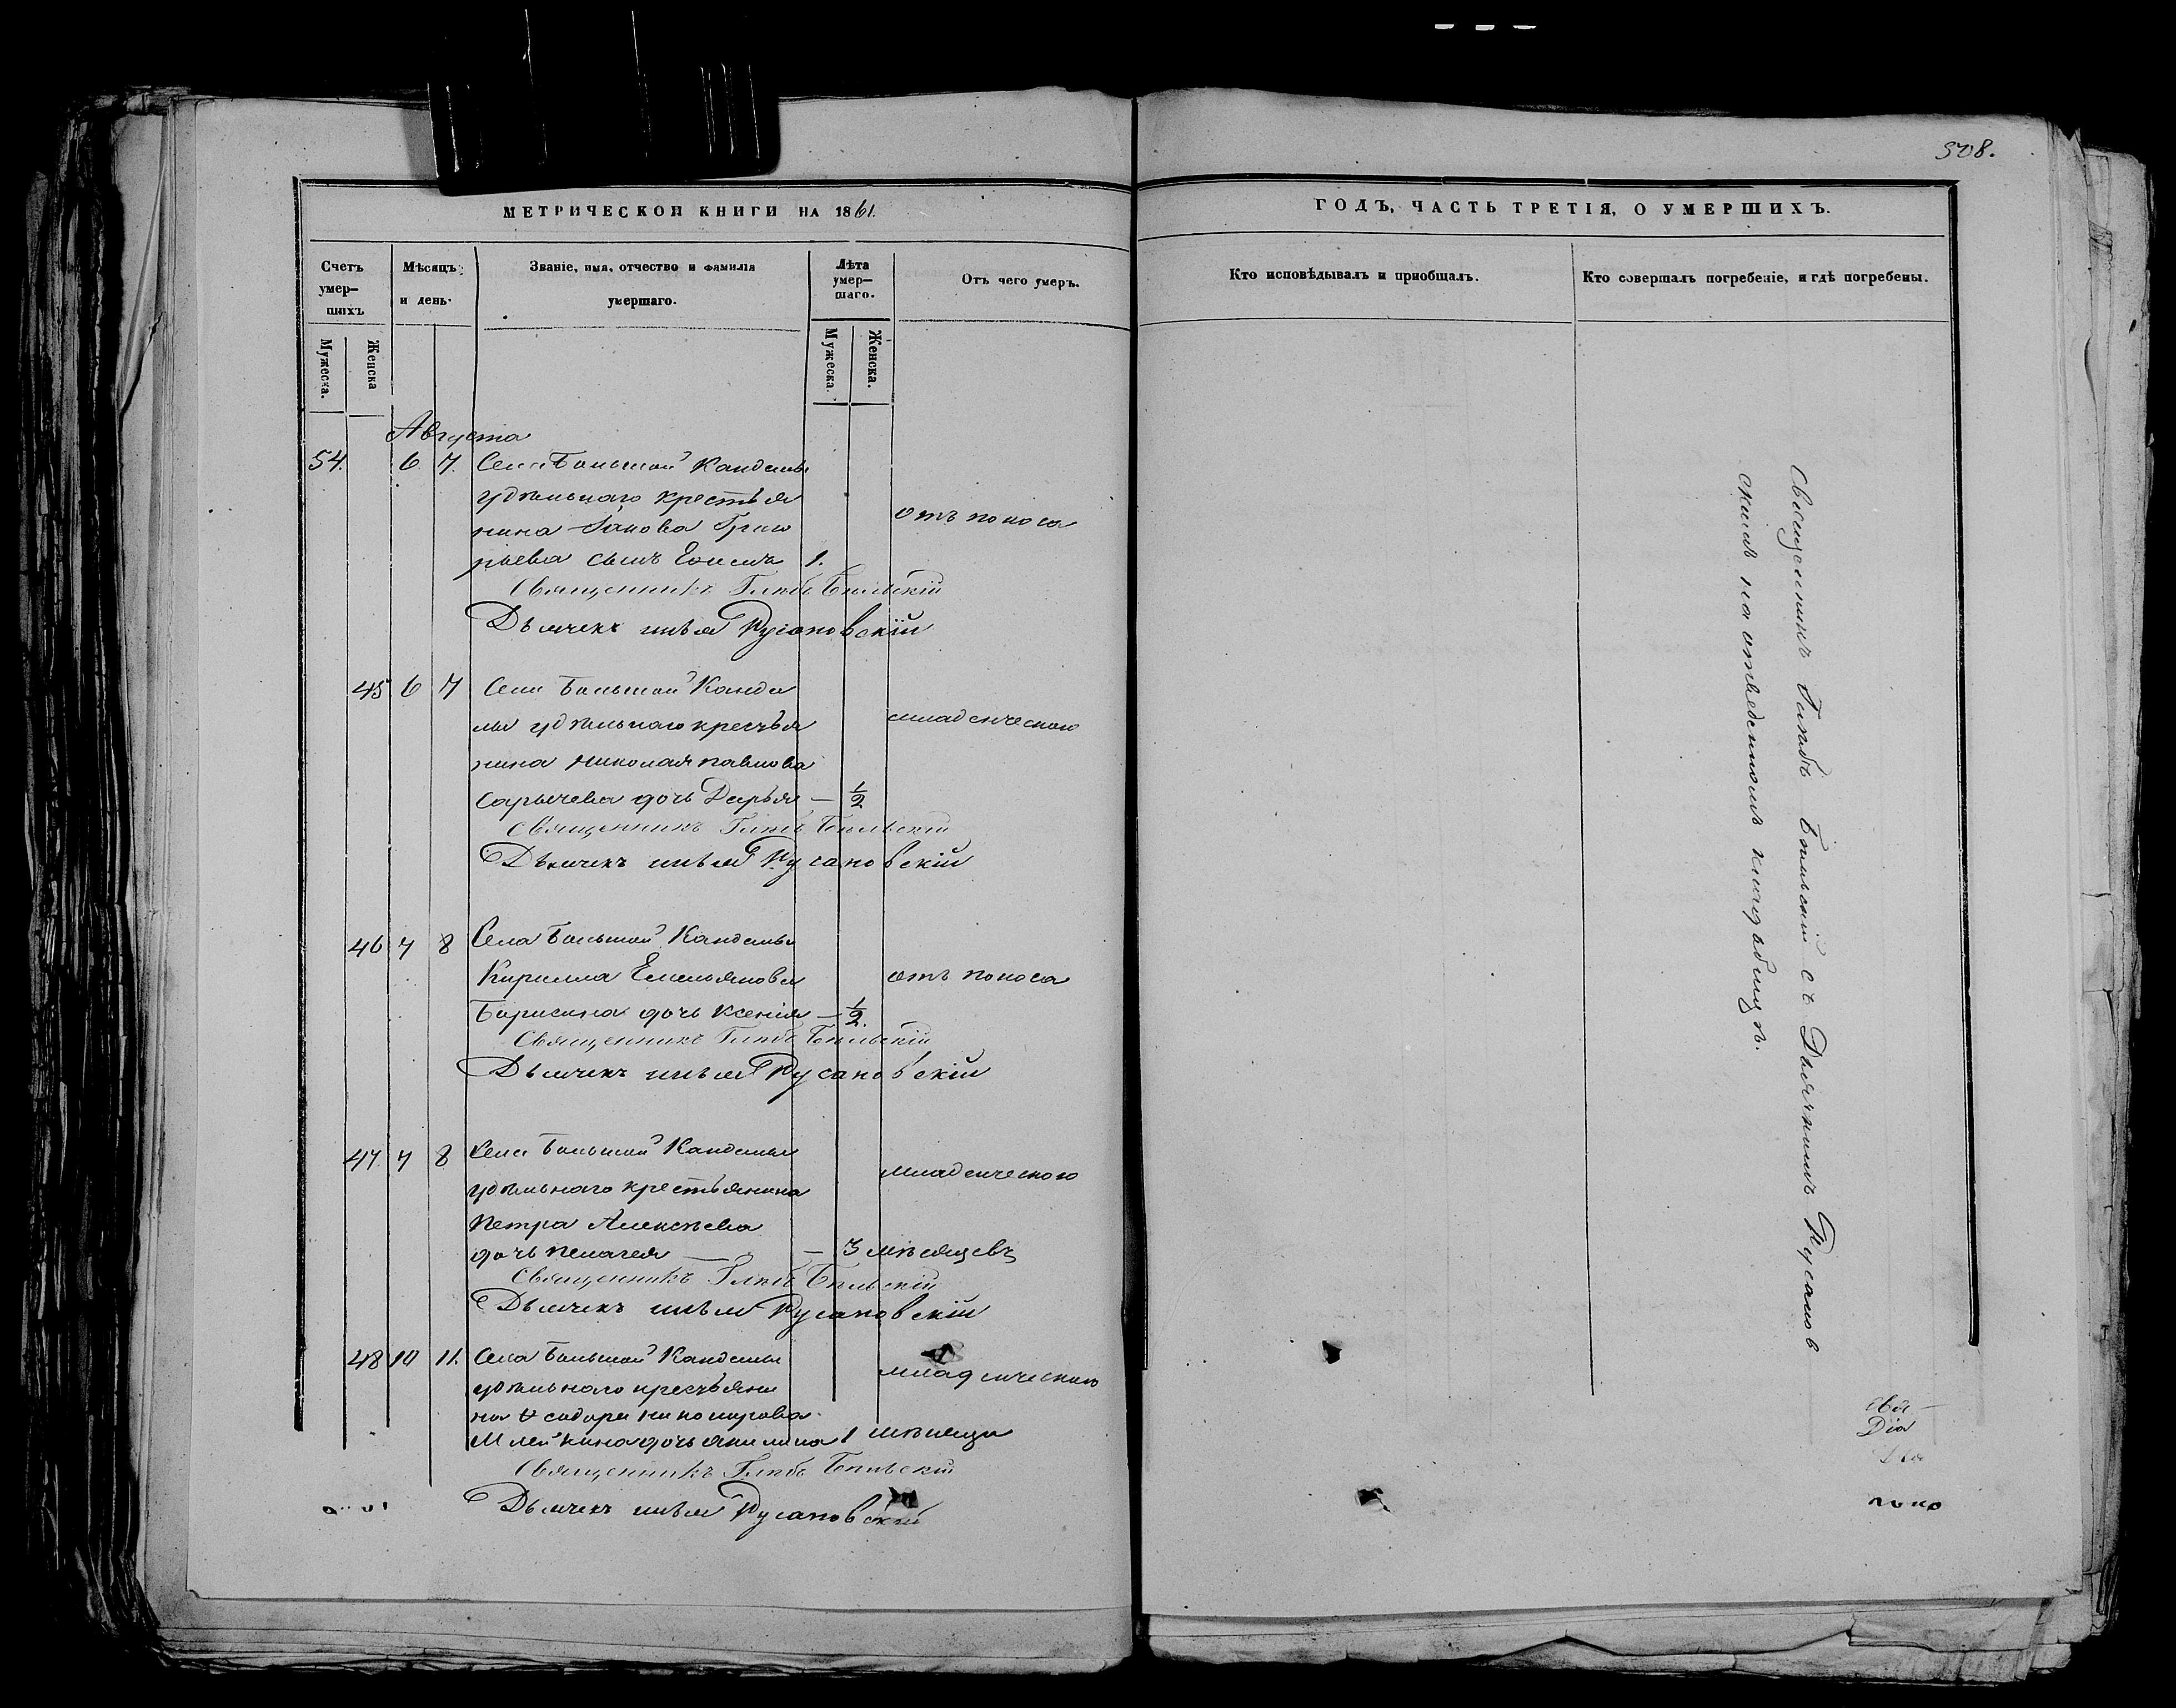 508.
МЕТРИЧЕСКОЙ КНИГИ НА 1861.
ГОДЪ, ЧАСТЬ ТРЕТІЯ, О УМЕРШИХЪ.
Счетъ умер-шихъ
Мѣсяцъ и день.
Званіе, имя, отчество и фамилія умершаго.
Лѣта умер-шаго.
Отъ чего умеръ.
Кто исповѣдывалъ и пріобщалъ.
Кто совершалъ погребеніе, и гдѣ погребены.
Мужеска. Женска Мужеска. Женска.
Августа
54. 6 7. Села Большой Кандалы
удѣльнаго крестья
нина Григо
отъ поноса
рьева сынъ 1.
Священникъ Глѣбъ Бѣльскій
Дьячекъ Русановскій
45 6 7 Села Большой Канда
лы удѣльнаго крестья
младенческою
нина Николая Павлова
Сарычева дочь Дарья — 1/2
Священникъ Глѣбъ Бѣльскій
Дьячекъ Русановскій
46 7 8 Села Большой Кандалы
Кирилла Емельянова
отъ поноса
Борисина дочь Ксенія — 1/2.
Священникъ Глѣбъ Бѣльскій
Дьячекъ Русановскій
47. 7 8 Села Большой Кандалы
удѣльнаго крестьянина
младенческою
Петра Алексѣева
дочь Пелагея — 3 мѣсяцевъ
Священникъ Глѣбъ Бѣльскій
Дьячекъ Русановскій
48 10 11. Села Большой Кандалы
удѣльнаго крестьяни
младенческою
на
дочь Акилина 1 мѣсяца
Священникъ Глѣбъ Бѣльскій
Дьячекъ Русановскій
Священникъ Глѣбъ Бѣльскій съ Дьячкомъ Русанов
скимъ на отведенномъ кладбищѣ.
Свя
Діа